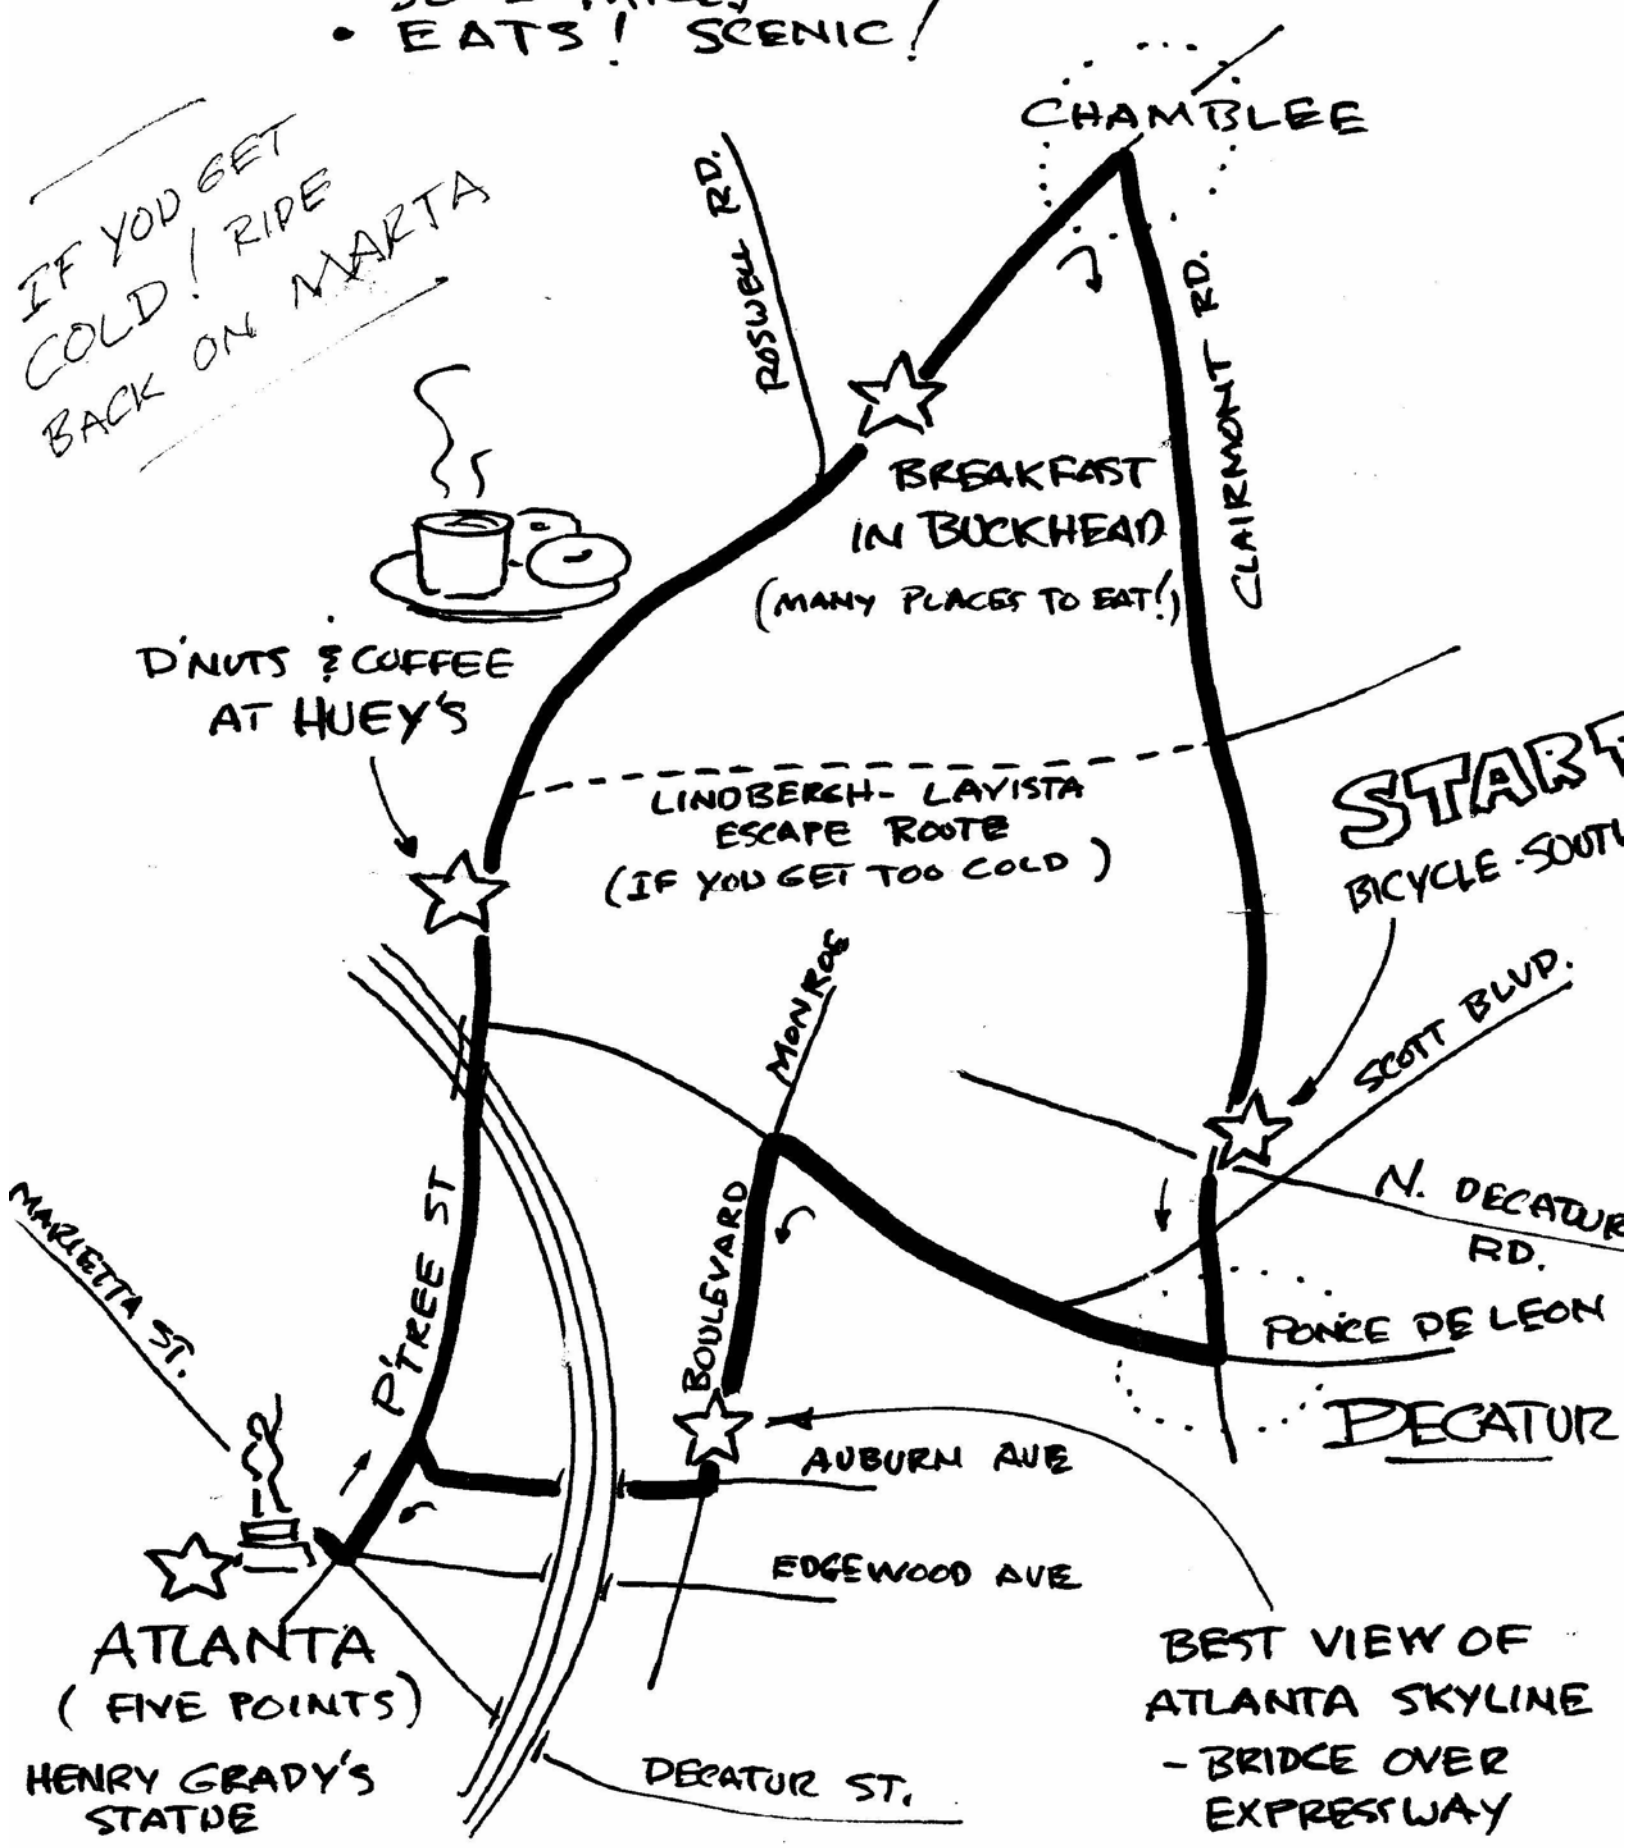 • EATS! SCENIC!
CHAMBLEE
IF YOU GET
COLD! RIDE
BACK ON MARTA
ROSWELL RD.
CLAIRMONT RD.
BREAKFAST
IN BUCKHEAD
(MANY PLACES TO EAT!)
D'NUTS & COFFEE
AT HUEY'S
LINDBERGH- LAVISTA
ESCAPE ROUTE
(IF YOU GET TOO COLD)
START
BICYCLE-SOUTH
MONROE
SCOTT BLVD.
N. DECATUR
RD.
MARIETTA ST.
P'TREE ST
BOULEVARD
PONCE DE LEON
DECATUR
AUBURN AVE
EDGEWOOD AVE
ATLANTA
(FIVE POINTS)
HENRY GRADY'S
STATUE
DECATUR ST.
BEST VIEW OF
ATLANTA SKYLINE
- BRIDGE OVER
EXPRESSWAY